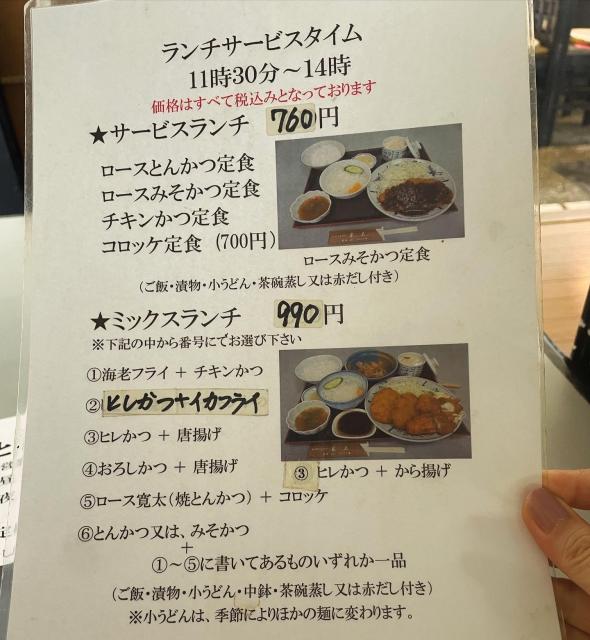 ランチサービスタイム
11時30分～14時
価格はすべて税込みとなっております
★サービスランチ 760円
ロースとんかつ定食
ロースみそかつ定食
チキンかつ定食
コロッケ定食 (700円)
ロースみそかつ定食
(ご飯・漬物・小うどん・茶碗蒸し又は赤だし付き)
★ミックスランチ 990円
※下記の中から番号にてお選び下さい
①海老フライ + チキンかつ
②ヒレかつ+イカフライ
③ヒレかつ + 唐揚げ
④おろしかつ + 唐揚げ
③ヒレかつ + から揚げ
⑤ロース寛太(焼とんかつ) + コロッケ
⑥とんかつ又は、みそかつ
+
①～⑤に書いてあるものいずれか一品
(ご飯・漬物・小うどん・中鉢・茶碗蒸し又は赤だし付き)
※小うどんは、季節によりほかの麺に変わります。